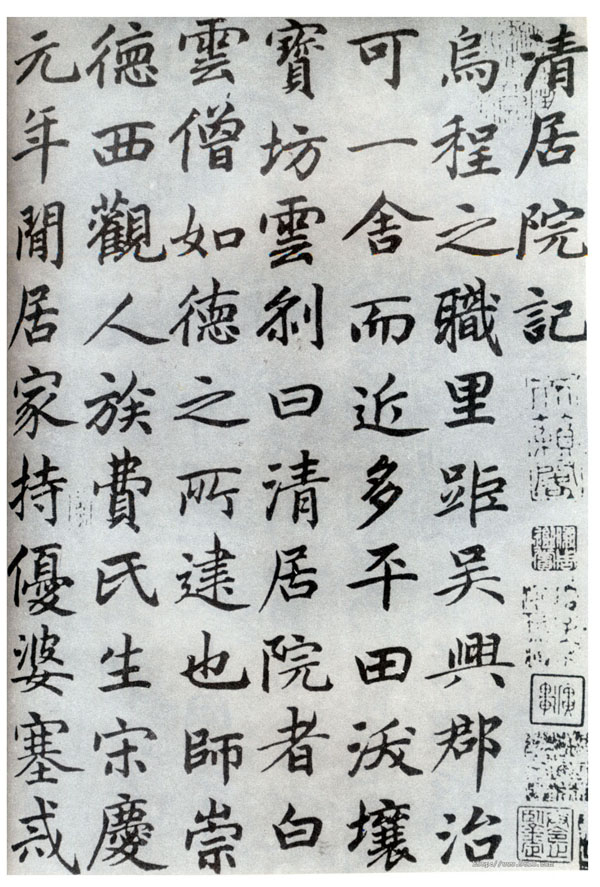 清居院記
烏程之職里距吳興郡治
可一舍而近多平田沃壤
寶坊雲刹曰清居院者白
雲僧如徳之所建也師崇
徳西觀人族費氏生宋慶
元年閒居家持優婆塞戒